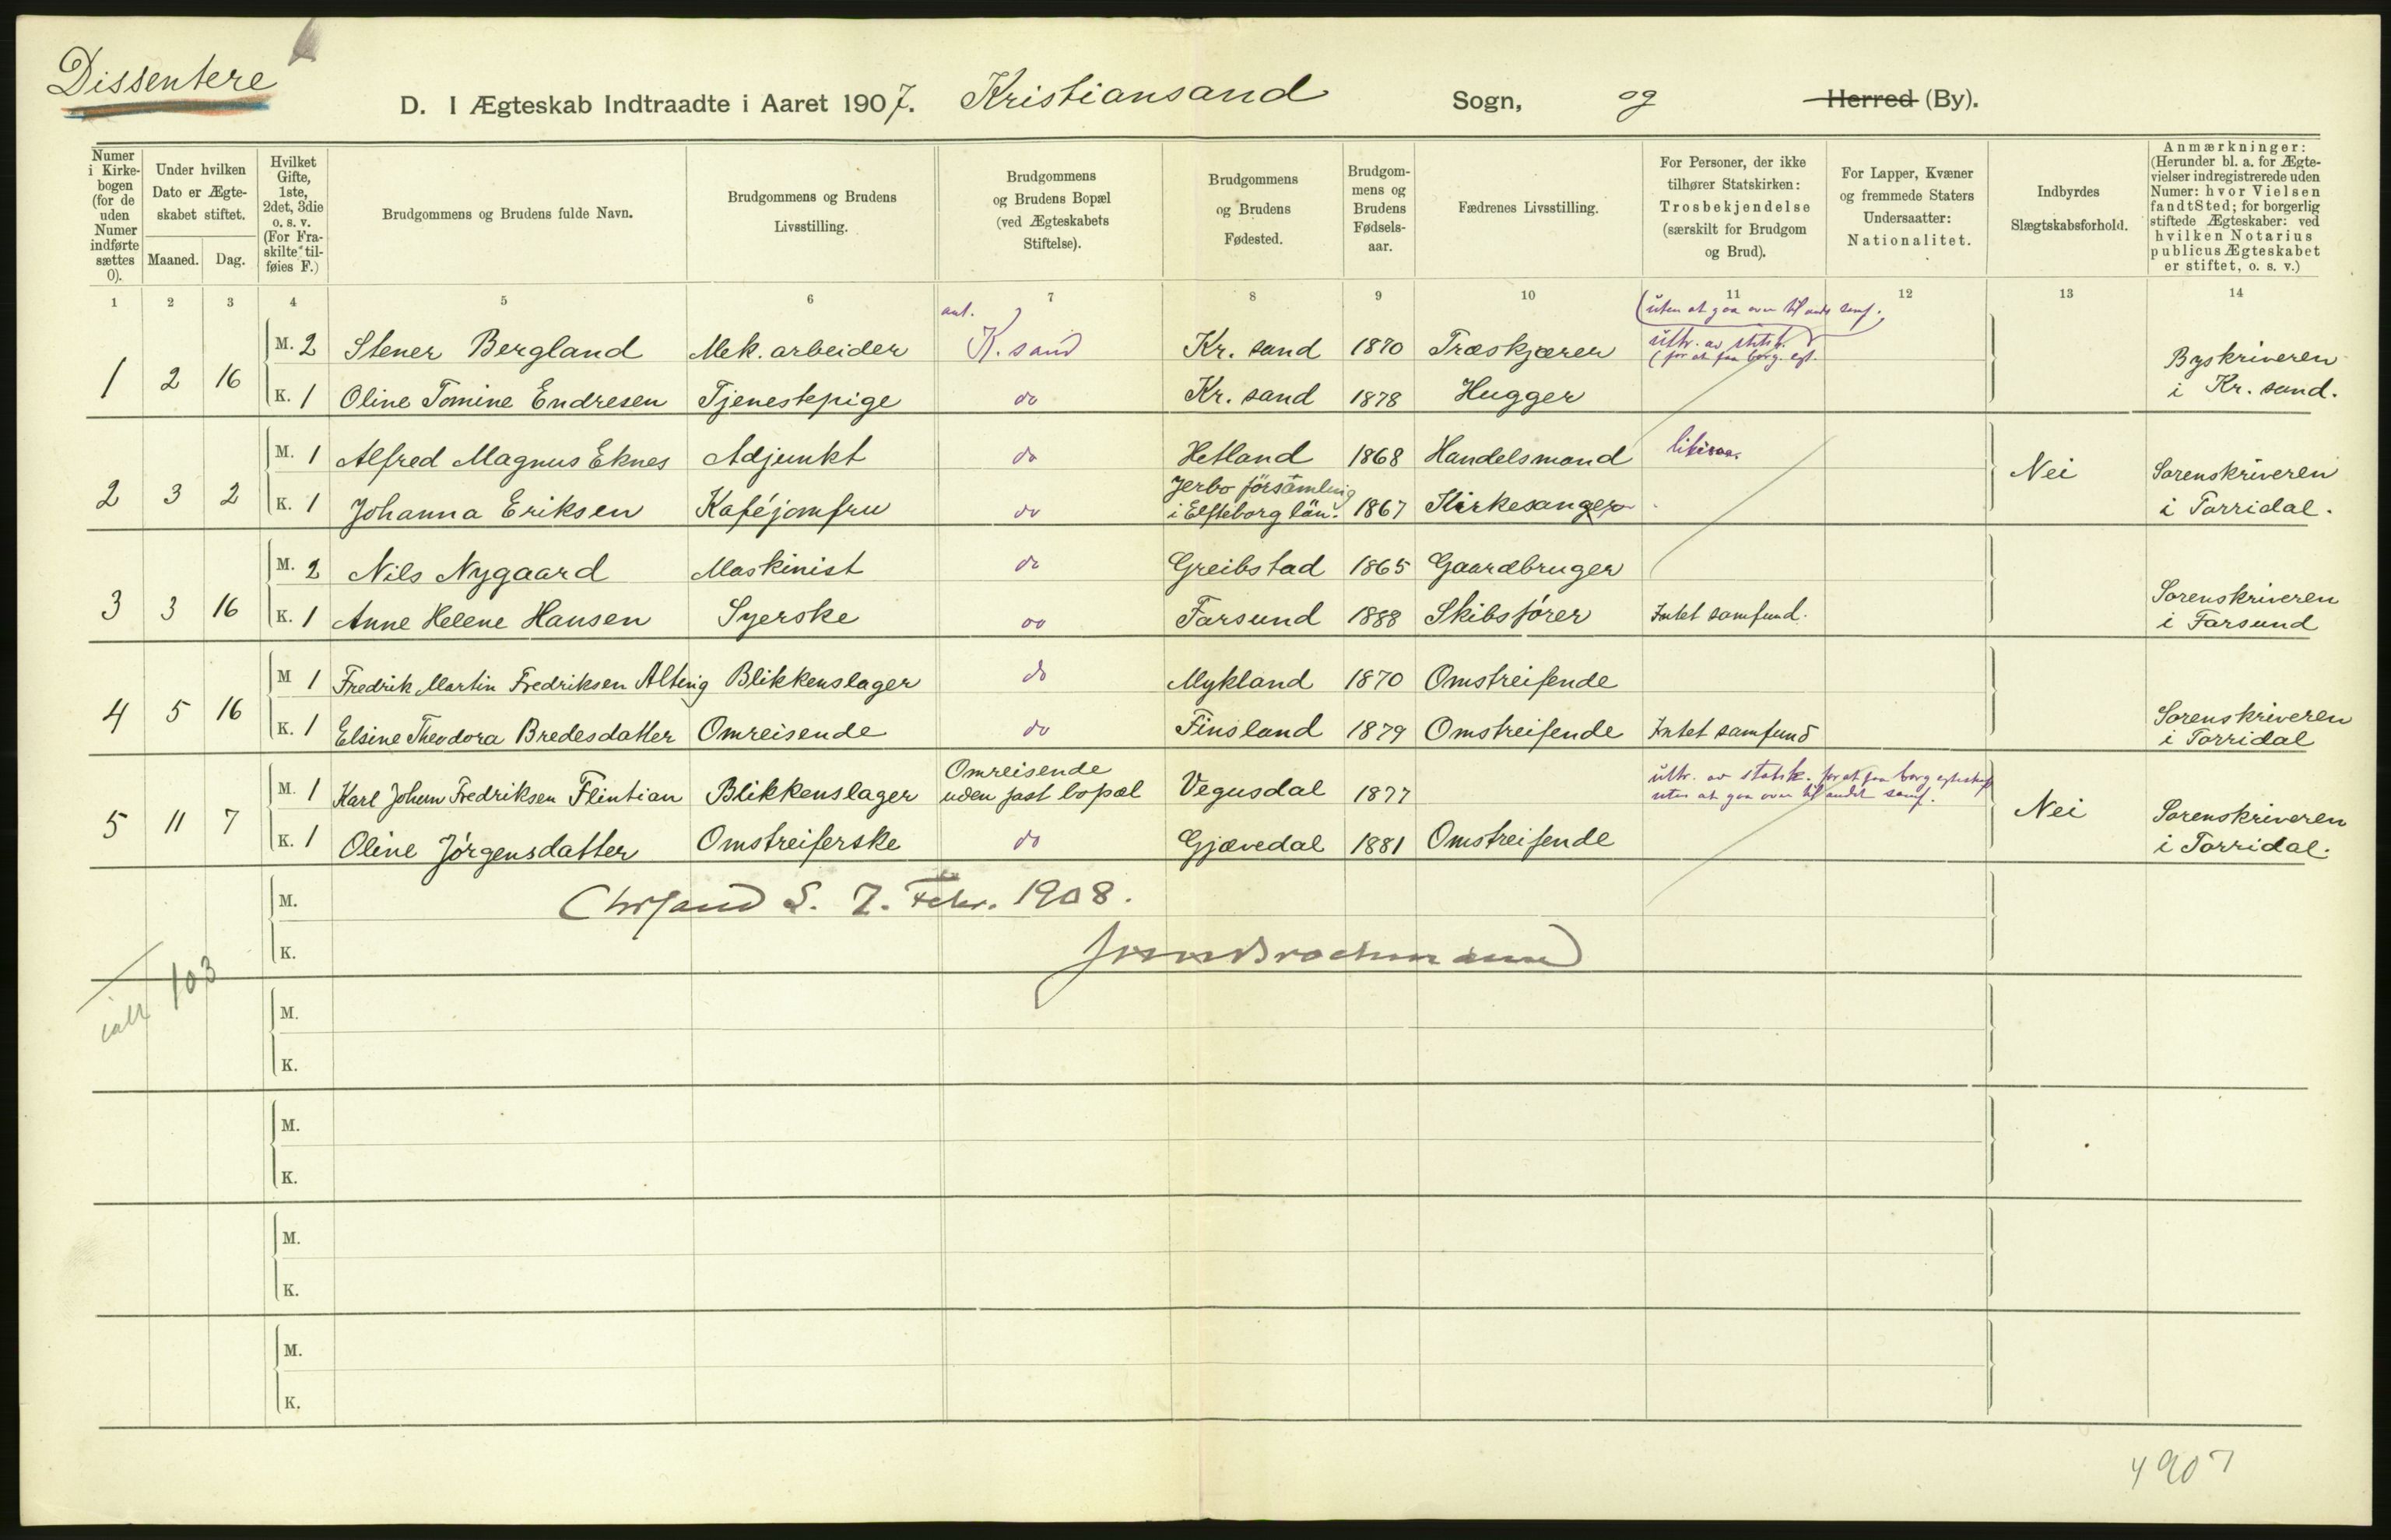 Dissentere
D. I Ægteskab Indtraadte i Aaret 1907. Kristiansand Sogn, og Herred (By).
Numer i Kirkebogen (for de uden Numer indførte sættes 0).
Under hvilken Dato er Ægteskabet stiftet.
Maaned. Dag.
Hvilket Gifte, 1ste, 2det, 3die o. s. v. (For Fraskilte tilføies F.)
Brudgommens og Brudens fulde Navn.
Brudgommens og Brudens Livsstilling.
Brudgommens og Brudens Bopæl (ved Ægteskabets Stiftelse).
Brudgommens og Brudens Fødested.
Brudgommens og Brudens Fødselsaar.
Fædrenes Livsstilling.
For Personer, der ikke tilhører Statskirken: Trosbekjendelse (særskilt for Brudgom og Brud).
For Lapper, Kvæner og fremmede Staters Undersaatter: Nationalitet.
Indbyrdes Slægtskabsforhold.
Anmærkninger: (Herunder bl. a. for Ægtevielser indregistrerede uden Numer: hvor Vielsen fandt Sted; for borgerlig stiftede Ægteskaber: ved hvilken Notarius publicus Ægteskabet er stiftet, o. s. v.)
1 2 3 4 5 6 7 8 9 10 11 12 13 14
ant.
(uten at gaa over til andt samf.
1 2 16 M. 2 Stener Bergland Mek. arbeider K.sand Kr. sand 1870 Træskjærer uttr. av statsk. (for at faa borg. egt. Byskriveren
K. 1 Oline Tomine Endresen Tjenestepige do Kr. sand 1878 Hugger i Kr. sand.
2 3 2 M. 1 Alfred Magnus Eknes Adjunkt do Hetland 1868 Handelsmand Nei Sorenskriveren
K. 1 Johanna Eriksen Kaféjomfru do Jerbo församling i Elfsborg län. 1867 Kirkesanger i Torridal.
3 3 16 M. 2 Nils Nygaard Maskinist do Greibstad 1865 Gaardbruger Sorenskriveren
K. 1 Anne Helene Hansen Syerske do Farsund 1888 Skibsfører Intet samfund. i Farsund
4 5 16 M 1 Fredrik Martin Fredriksen Altnig Blikkenslager do Mykland 1870 Omstreifende Sorenskriveren
K. 1 Elsine Theodora Bredesdatter Omreisende do Finsland 1879 Omstreifende Intet samfund i Torridal
5 11 7 M. 1 Karl Johan Fredriksen Flintian Blikkenslager Omreisende uden fast bopæl Vegusdal 1877 uttr. av statsk. for at faa borg egteskap uten at gaa over til andet samf. Nei Sorenskriveren
K. 1 Oline Jørgensdatter Omstreiferske do Gjævedal 1881 Omstreifende i Torridal.
M. Chrsand S. 7. Febr. 1908.
K.
ialt 103
M.
K.
M.
K.
M.
K.
M.
K.
4907